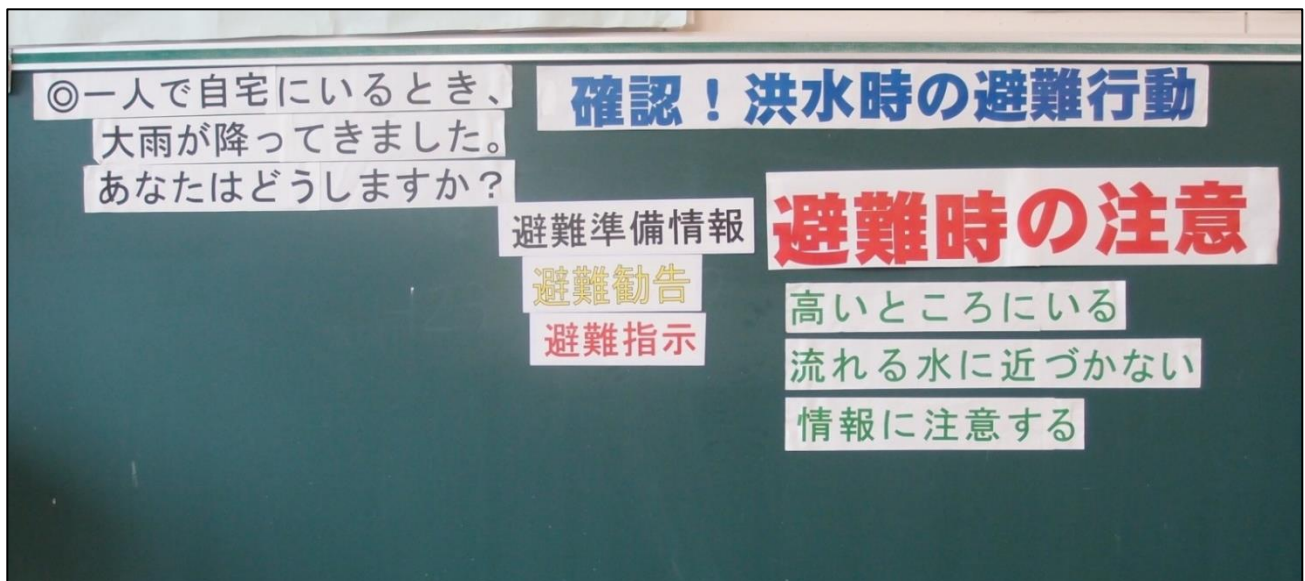 ◎一人で自宅にいるとき、
大雨が降ってきました。
あなたはどうしますか?
確認!洪水時の避難行動
避難準備情報
避難勧告
避難指示
避難時の注意
高いところにいる
流れる水に近づかない
情報に注意する